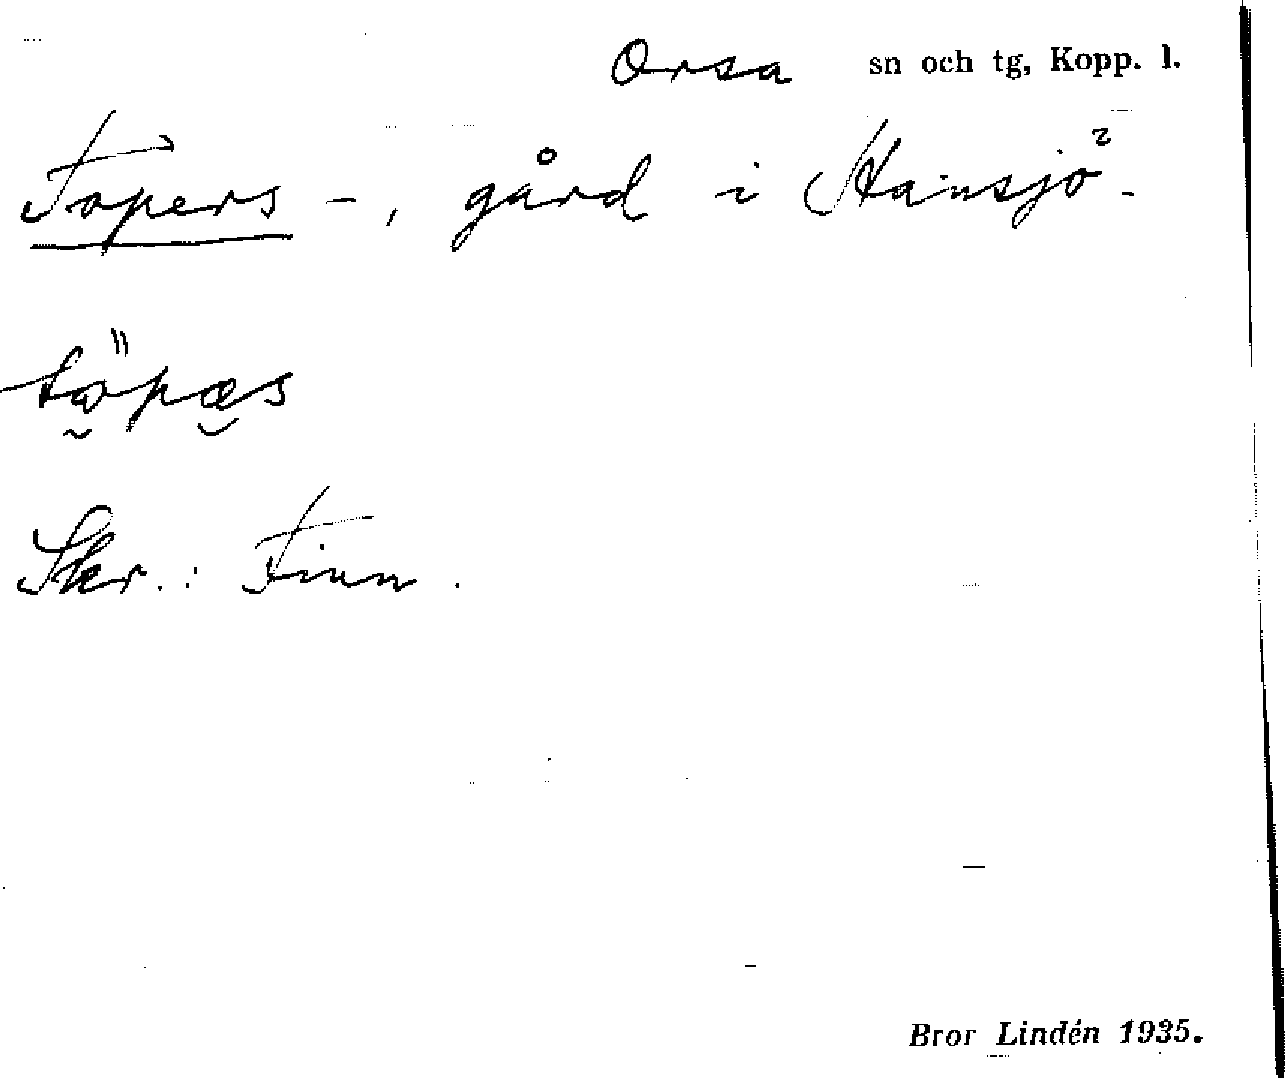 Orsa sn och tg, Kopp. l.
Topers -, gård i Hansjö -
Skr.: Finn.
Bror Lindén 1935.